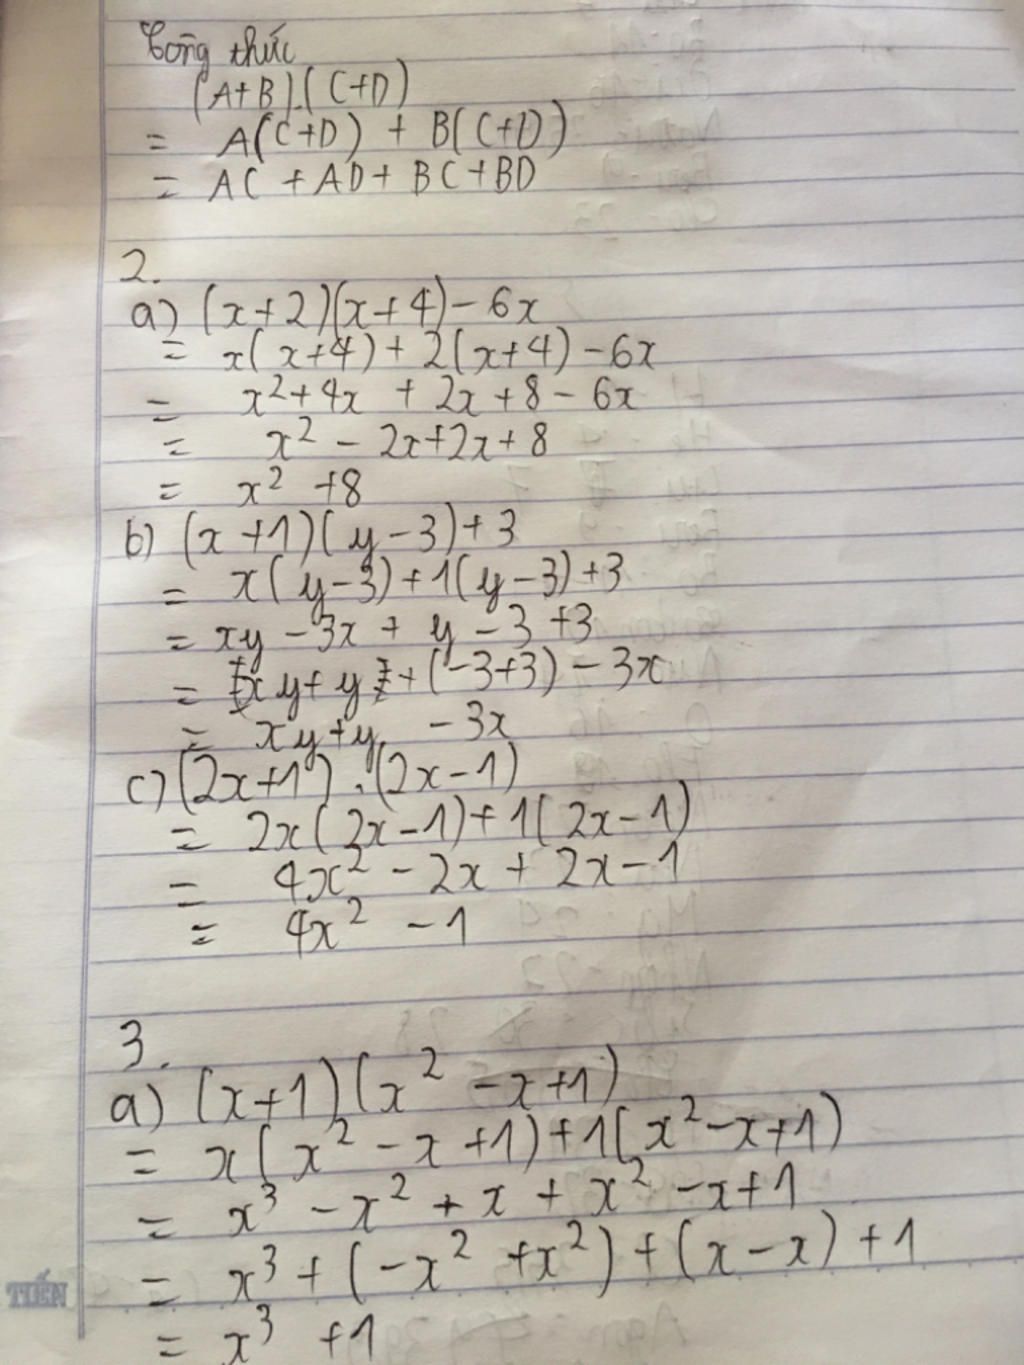 Công thức
(A+B).(C+D)
= A(C+D) + B(C+D)
= AC + AD + BC + BD
2.
a) (x+2)(x+4) - 6x
= x(x+4) + 2(x+4) - 6x
= x² + 4x + 2x + 8 - 6x
= x² - 2x + 2x + 8
= x² + 8
b) (x+1)(y-3) + 3
= x(y-3) + 1(y-3) + 3
= xy - 3x + y - 3 + 3
= xy + y + (-3+3) - 3x
= xy + y - 3x
c) (2x+1).(2x-1)
= 2x(2x-1) + 1(2x-1)
= 4x² - 2x + 2x - 1
= 4x² - 1
3.
a) (x+1)(x² - x + 1)
= x(x² - x + 1) + 1(x² - x + 1)
= x³ - x² + x + x² - x + 1
= x³ + (-x² + x²) + (x - x) + 1
TIẾN
= x³ + 1